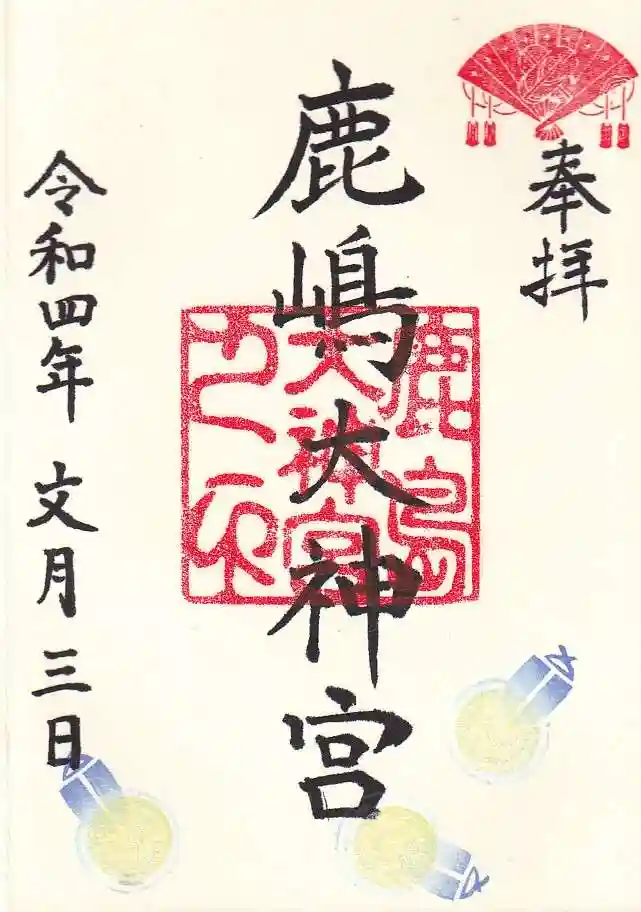 奉拝
鹿嶋大神宮
鹿島
大神宮
之印
令和四年 文月 三日